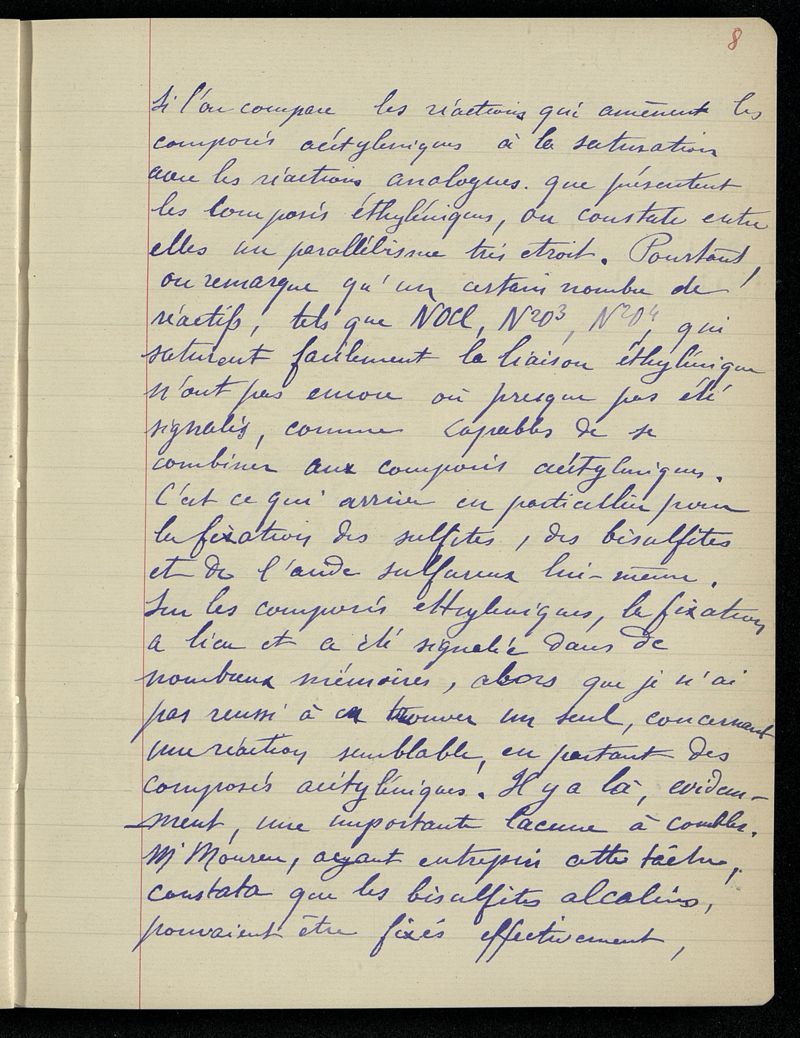 8
Si l'on compare les réactions qui amènent les
composés acétyléniques à la saturation
avec les réactions analogues. que présentent
les composés éthyléniques, on constate entre
elles un parallélisme très etroit. Pourtant,
on remarque qu'un certain nombre de
réactifs, tels que NOCl, N²O³, N²O⁴, qui
saturent facilement la liaison éthylénique
n'ont pas encore où presque pas été
signalés, comme capables de se
combiner aux composés acétyleniques.
C'est ce qui arrive en particulier pour
la fixation des sulfites, des bisulfites
et de l'acide sulfureux lui-même.
Sur les composés ethyleniques, la fixation
a lieu et a été signalée dans de
nombreux mémoires, alors que je n'ai
pas reussi à en trouver un seul, concernant
une réaction semblable, en partant des
composés acétyléniques. Il y a là, evidem-
ment, une importante lacune à combler.
Mr Moureu, ayant entrepris cette tâche,
constata que les bisulfites alcalins,
pouvaient être fixés effectivement,